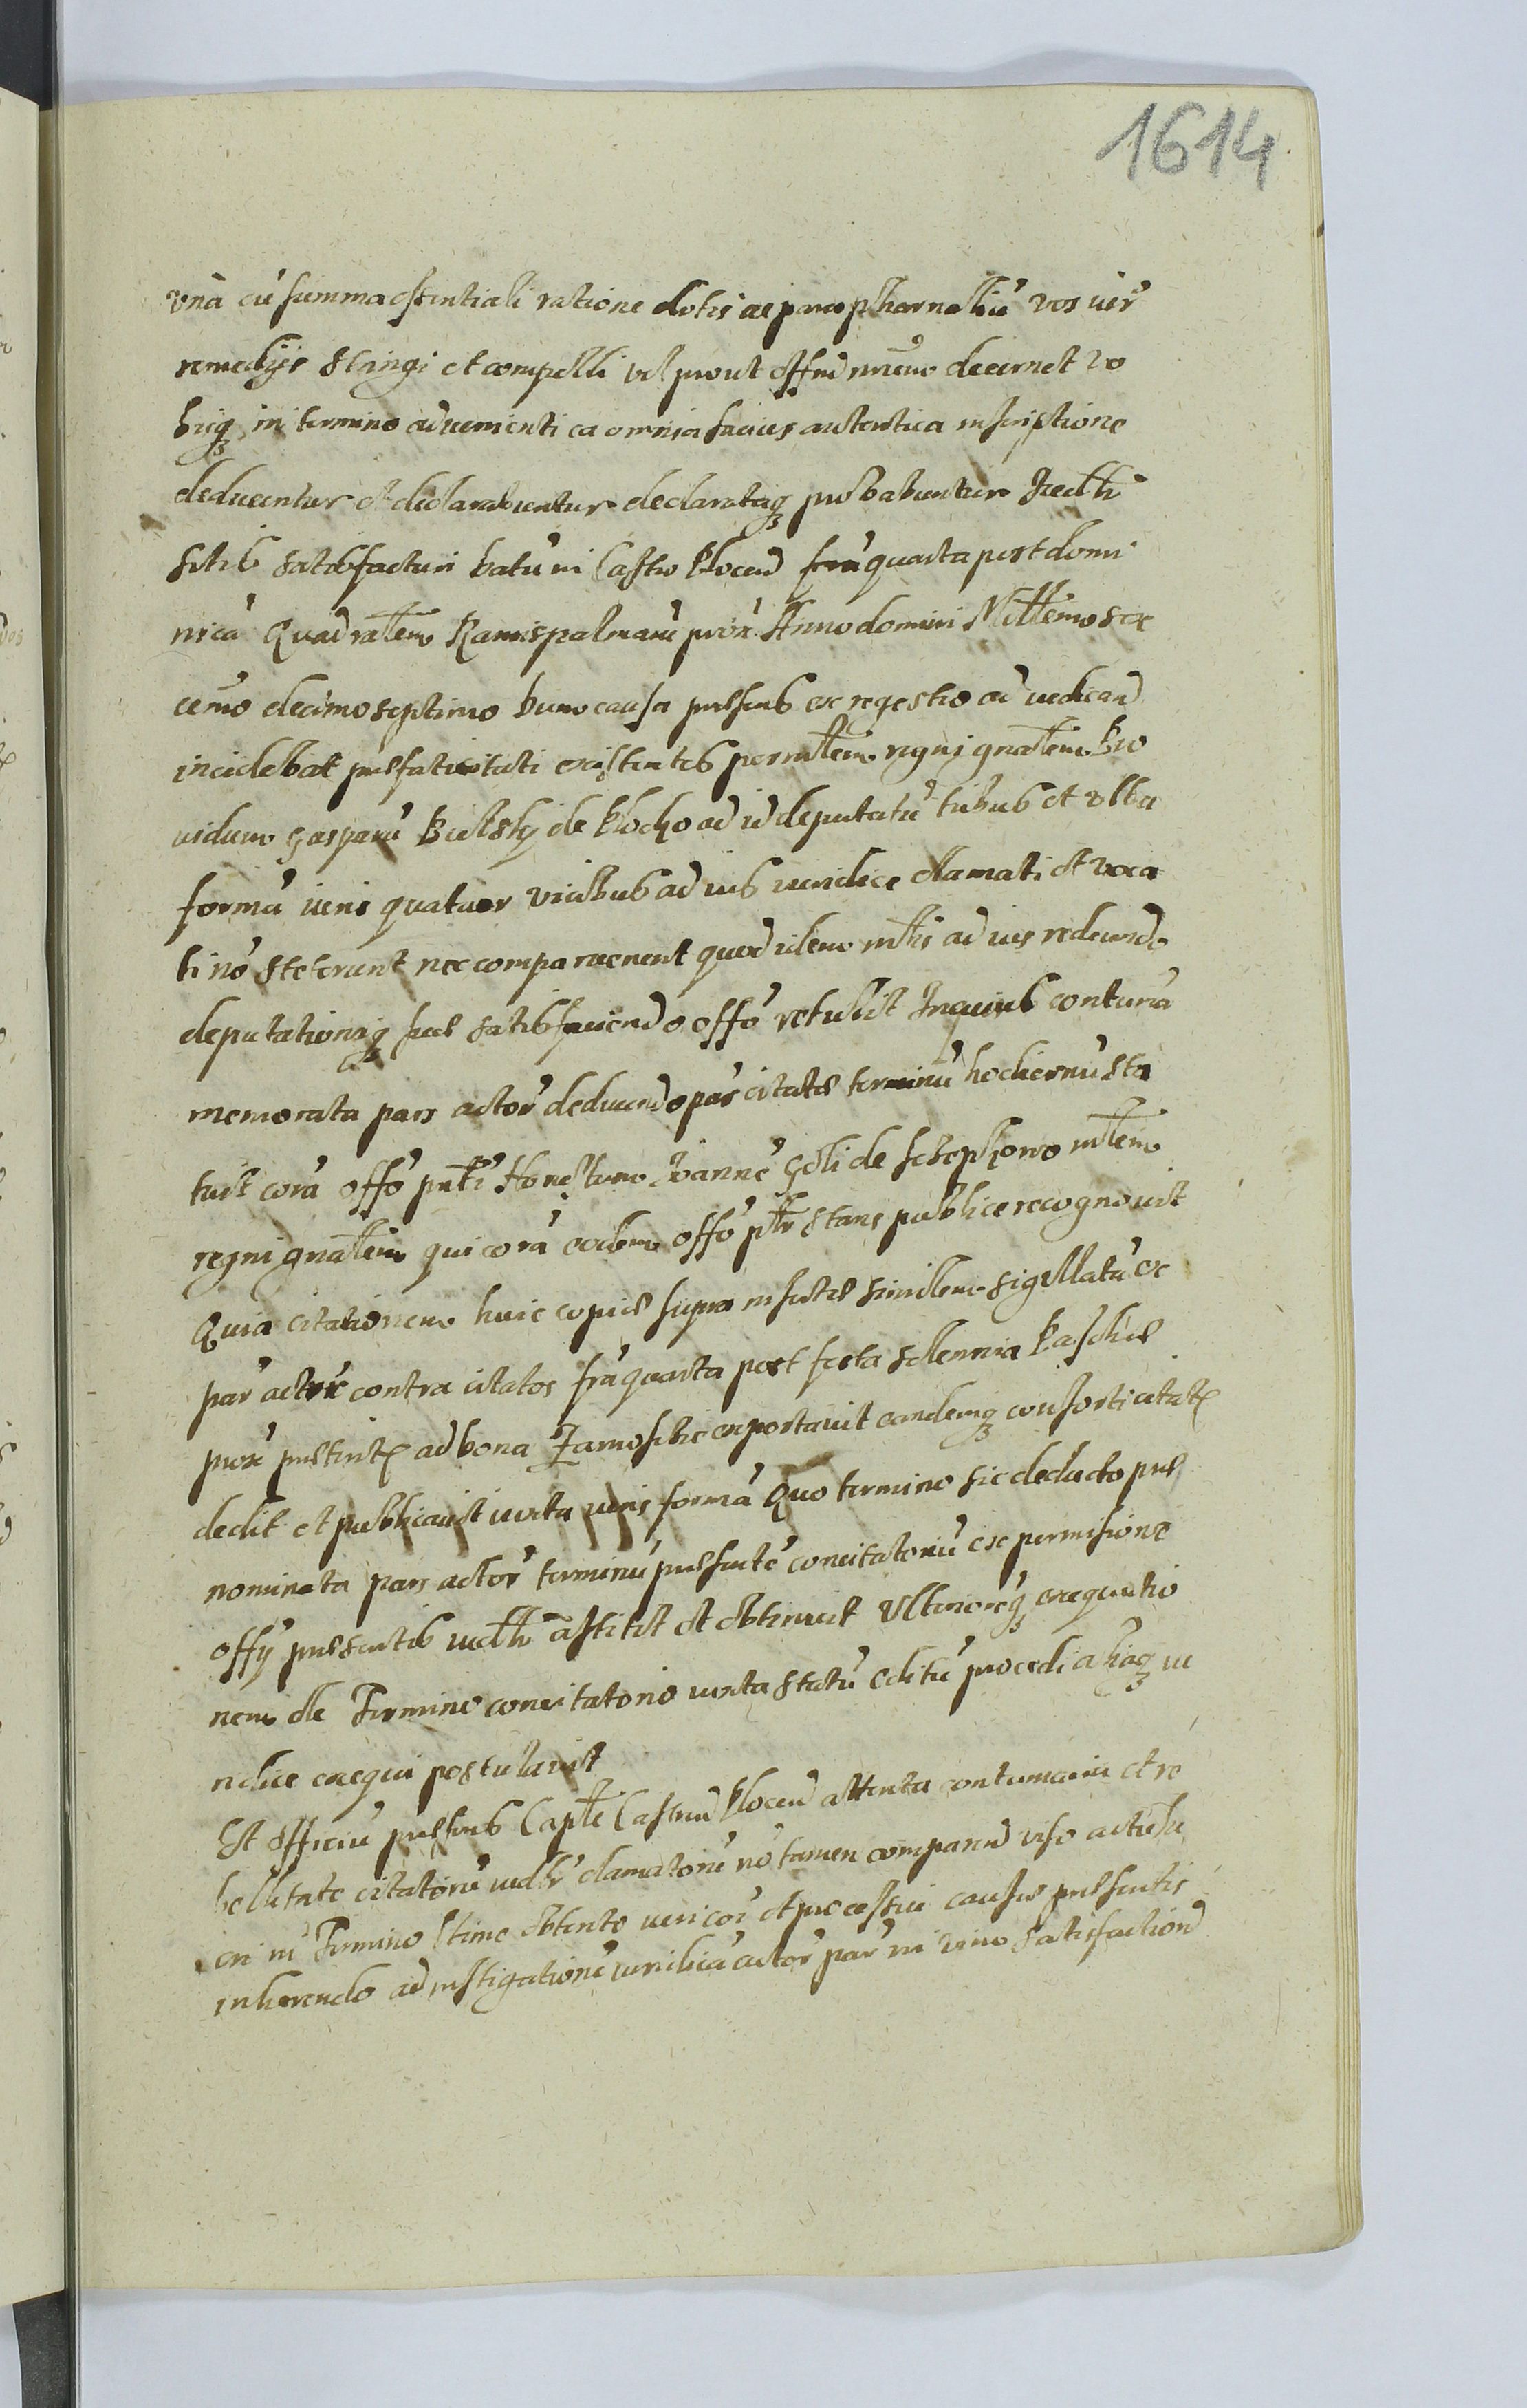 1614
vna cu̅ summa essentiali ratione dotis ac parapharnaliu̅ vos iur̅
remedijs stringi et compelli vel prout offm̅ nrm̅ decernet vo
bisq₃ in termino advenienti ea omnia lacius autentica inscriptione
deducentur et declarabuntur declarataq₃ probabuntur
satisfacturi Datu̅ in Castro Plocen̅ fr̅ia quarta post domi
nica̅ Quadralem̅ Ramispalmaru̅ prox̅ Anno domini Millemo sex
cemo̅ decimo septimo hunc causa praesens ex regestro ad iudicand̅
incidebat praefati citati existentes per mlem̅ regni gnalem̅ Pro
uidum Gasparu̅ Bielsky de Plocko ad id deputatu̅ tribus et vltra
forma̅ iuris quatuor vicibus ad ius iuridice clamati et voca
ti no̅ steterunt nec comparuerunt quod idem mlis̅ ad ius redeundo
deputationiq₃ suae satisfaciendo offo̅ retulit In quius contuma̅
memorata pars actor̅ deducendo par̅ citatae terminu̅ hodiernu̅ sta
tuit cora̅ offo̅ pnti̅ Honestum Joanne̅ de mlem̅
regni gnalem̅ qui cora̅ eodem offo̅ pltr̅ stans publice recognouit
Quia citationem huic copiae supra insertae similem sigillatu̅ ex
par̅ actor̅ contra citatos fr̅ia quarta post festa solennia Paschae
prox̅ praeterit̅ ad bona Zamoscie exportauit eandemq₃ consorti citat̅
dedit et publicauit iuxta iuris forma̅ Quo termino sic deducto prae
nominata pars actor̅ terminu̅ praesente̅ concitatoriu̅ ex permissione
offy praesentis iudlr̅ astitit et obtinuit Vlteriore̅q₃ exequutio
nem de Termino concitatorio iuxta statu̅ editu̅ procedi aliaq₃ iu
ridice exequi postulauit
Et officiu̅ praesens Captle̅ Castren̅ Plocen̅ attenta contumacia et re
bellitate citatoru̅ iudlr̅ clamatoru̅ no̅ tamen comparen̅ viso
eri in Termino obtento iuri et processui causae praesentis
inherendo ad instigatione̅ iuridica̅ actor̅ par̅ in vim satisfaction̅